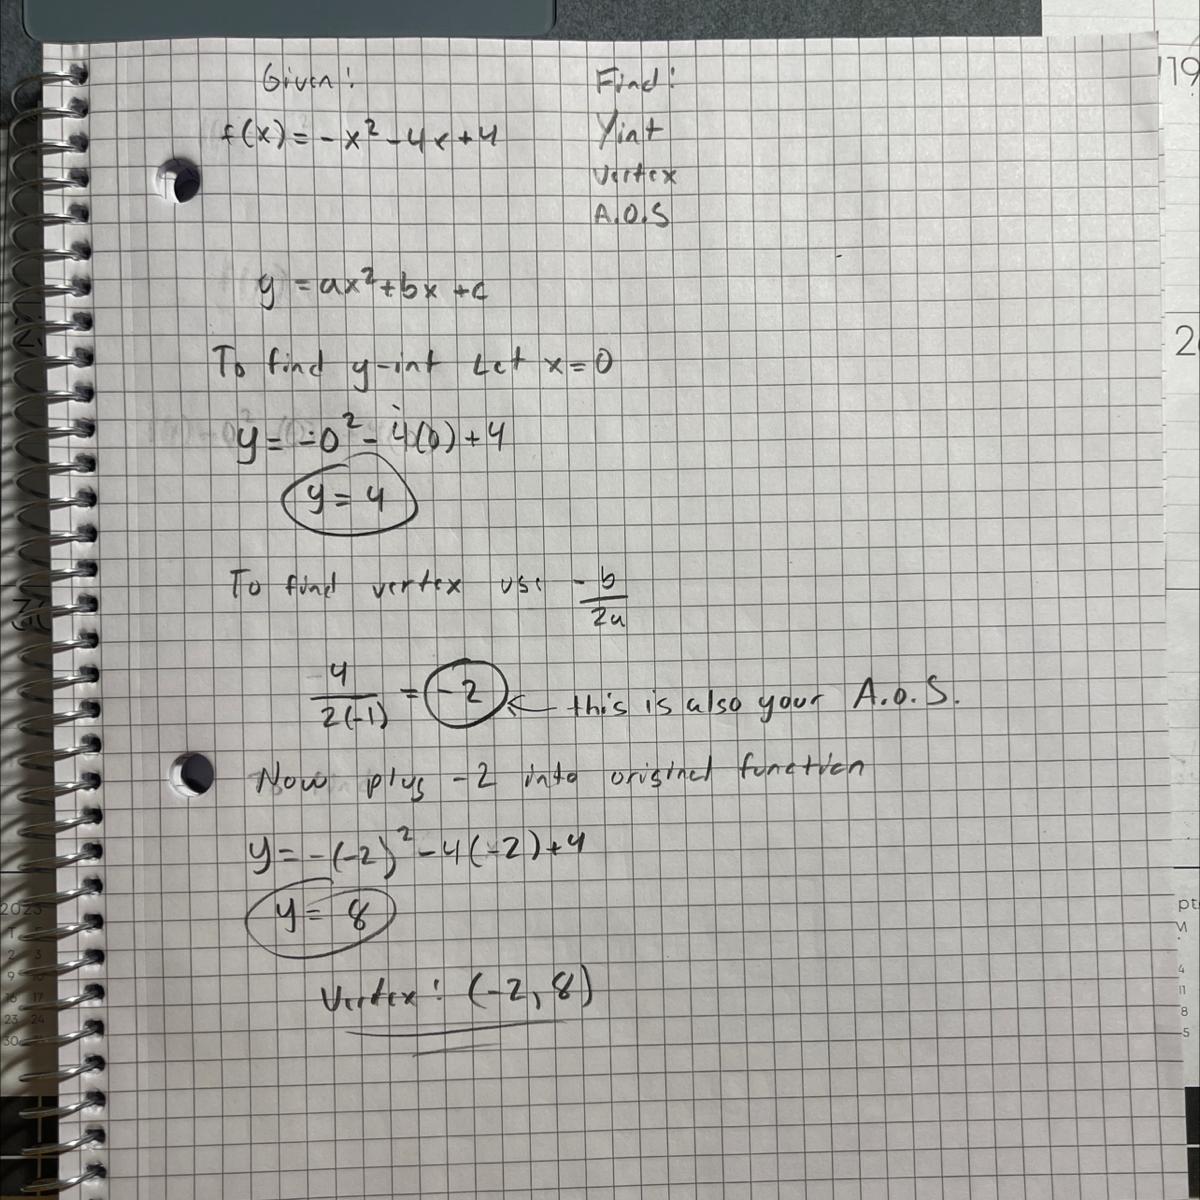 Given:
f(x) = -x² - 4x + 4
Find:
Yint
vertex
A.O.S
y = ax² + bx + c
To find y-int Let x = 0
y = -0² - 4(0) + 4
y = 4
To find vertex use -b/2a
4/2(-1) = -2 ← this is also your A.O.S.
Now plug -2 into original function
y = -(-2)² - 4(-2) + 4
y = 8
Vertex: (-2, 8)
19
2
2023
2 3
9
16 17
23 24
30
pt
M
4
11
8
5